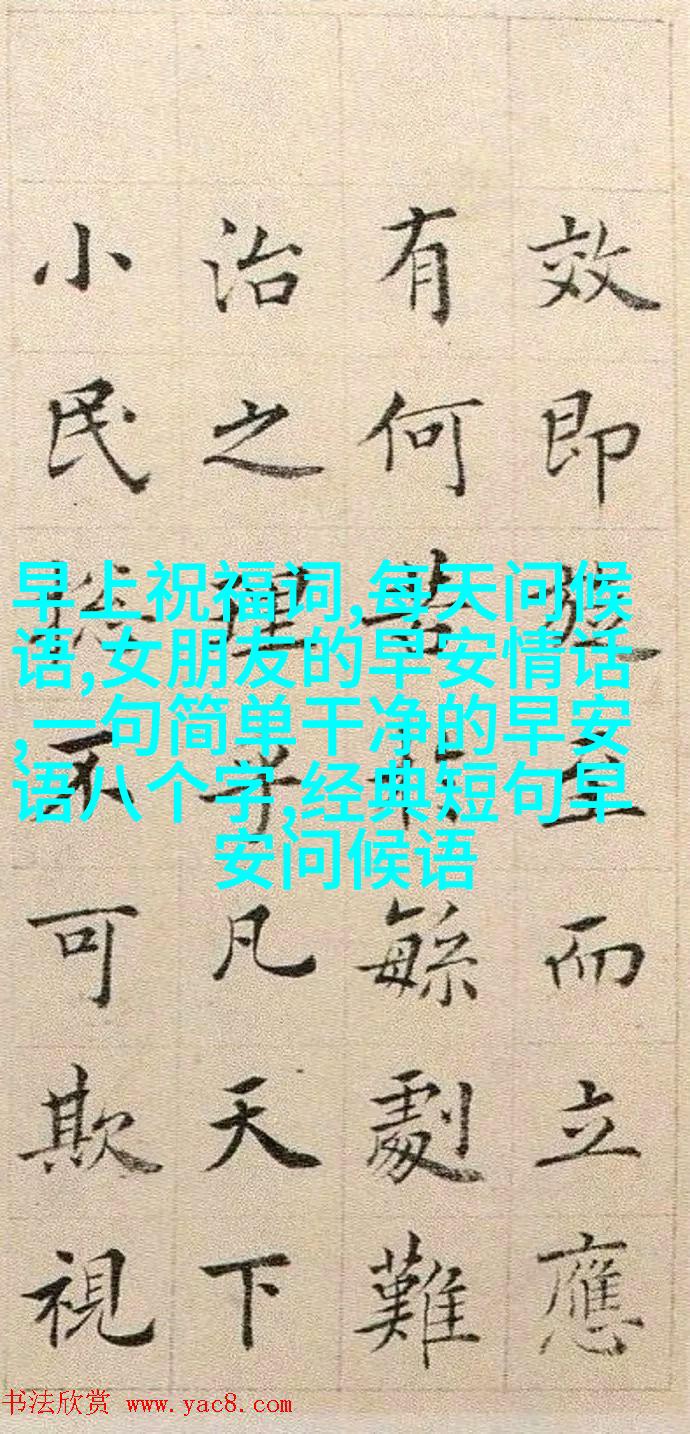 效即至而立應
有何苦於緐劇難
治之理乎凡天下
小民不可欺視
早上祝福词,每天问候
语,女朋友的早安情话
,一句简单干净的早安
语八个字,经典短句早
安问候语
书法欣赏 www.yac8.com